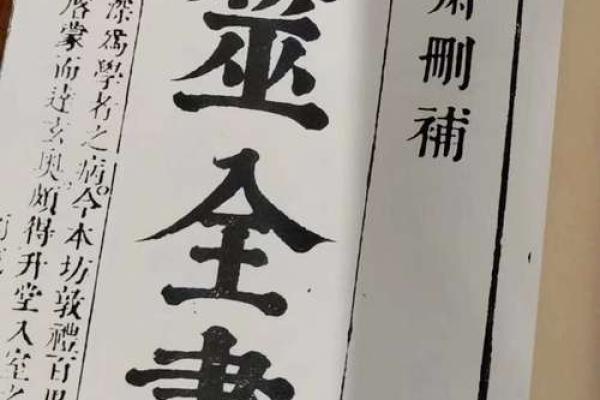 刪補
靈全書
深爲學者之病。今本坊敦禮百
啓蒙而達玄奧頗得升堂入室